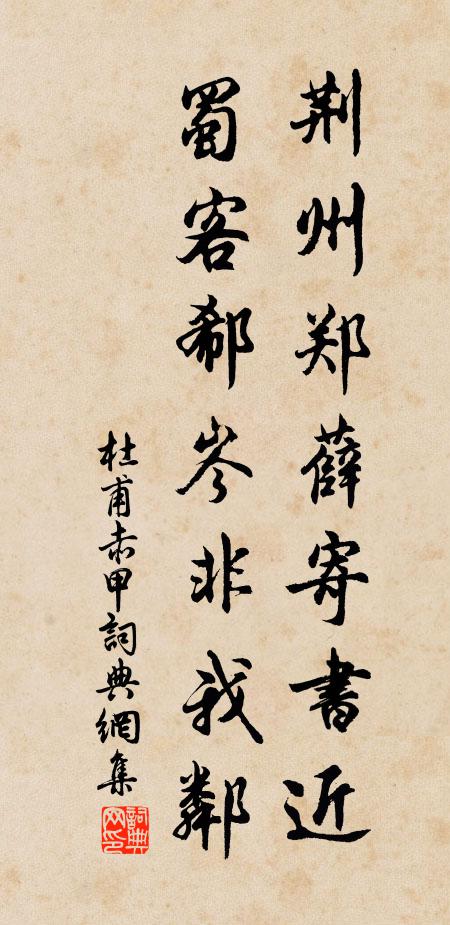 荆州郑薛寄書近
蜀客郗岑非我鄰
杜甫赤甲詞典網集
詞典网印